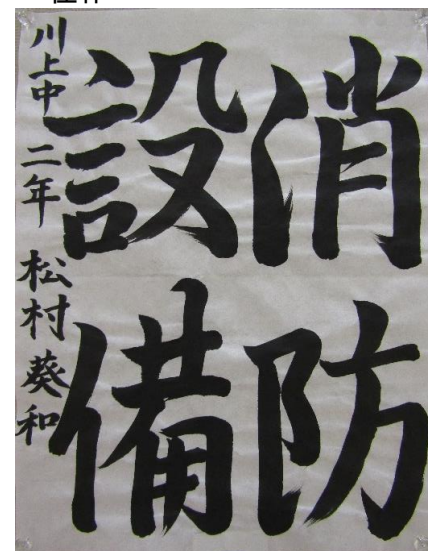 消防
設備
川上中 二年 松村葵和